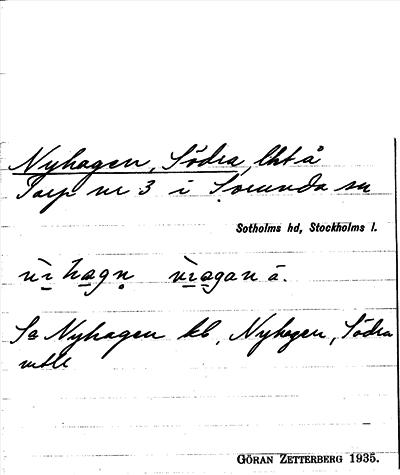 Nyhagen, Södra, lht å
Torp nr 3 i Sorunda sn
Sotholms hd, Stockholms l.
nìhagn̥ nìagan å.
Sa Nyhagen kb, Nyhagen, Södra
mtll
GÖRAN ZETTERBERG 1935.